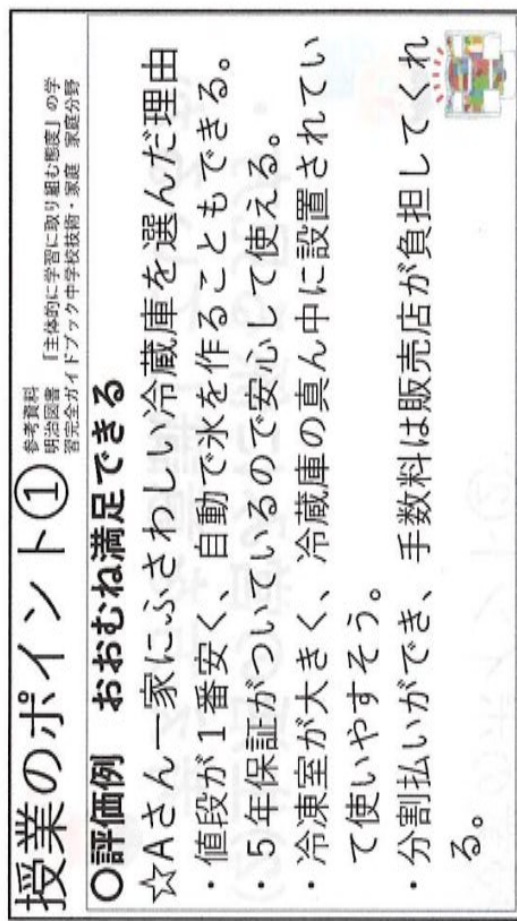 授業のポイント①
参考資料
明治図書　『主体的に学習に取り組む態度』の学
習完全ガイドブック中学校技術・家庭　家庭分野
〇評価例　おおむね満足できる
☆Aさん一家にふさわしい冷蔵庫を選んだ理由
・値段が１番安く、自動で氷を作ることもできる。
・５年保証がついているので安心して使える。
・冷凍室が大きく、冷蔵庫の真ん中に設置されてい
て使いやすそう。
・分割払いができ、手数料は販売店が負担してくれ
る。